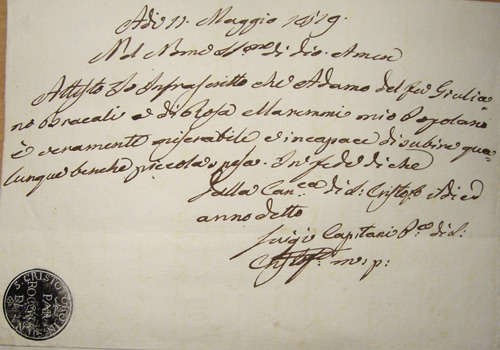 Adi 11. Maggio 1819.
Nel Nome SS.mo di dio. Amen
Attesto Io Infrascritto che Adamo del fu Giulia
no Bracali e di Rosa Maremmi mio Popolano
è veramente miserabile e incapace di subire qua-
lunque benche piccola spesa. In fede di che
Dalla Can.ca di S: Cristof.o Adi ed
anno detto
Luigi Capitani P.co di S:
Cristof.o m: p:
S. CRISTOFORO